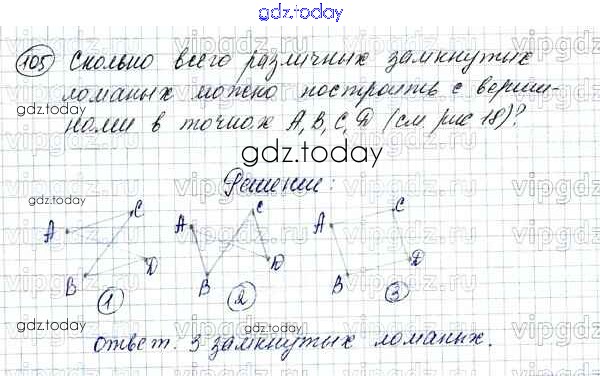 gdz.today
105 Сколько всего различных замкнутых
ломаных можно построить с верши-
gdz.today
нами в точках A, B, C, D (см рис 18)?
gdz.today
Решение:
gdz.today
A C B D 1
A C B D 2
A C B D 3
gdz.today
Ответ. 3 замкнутых ломаных.